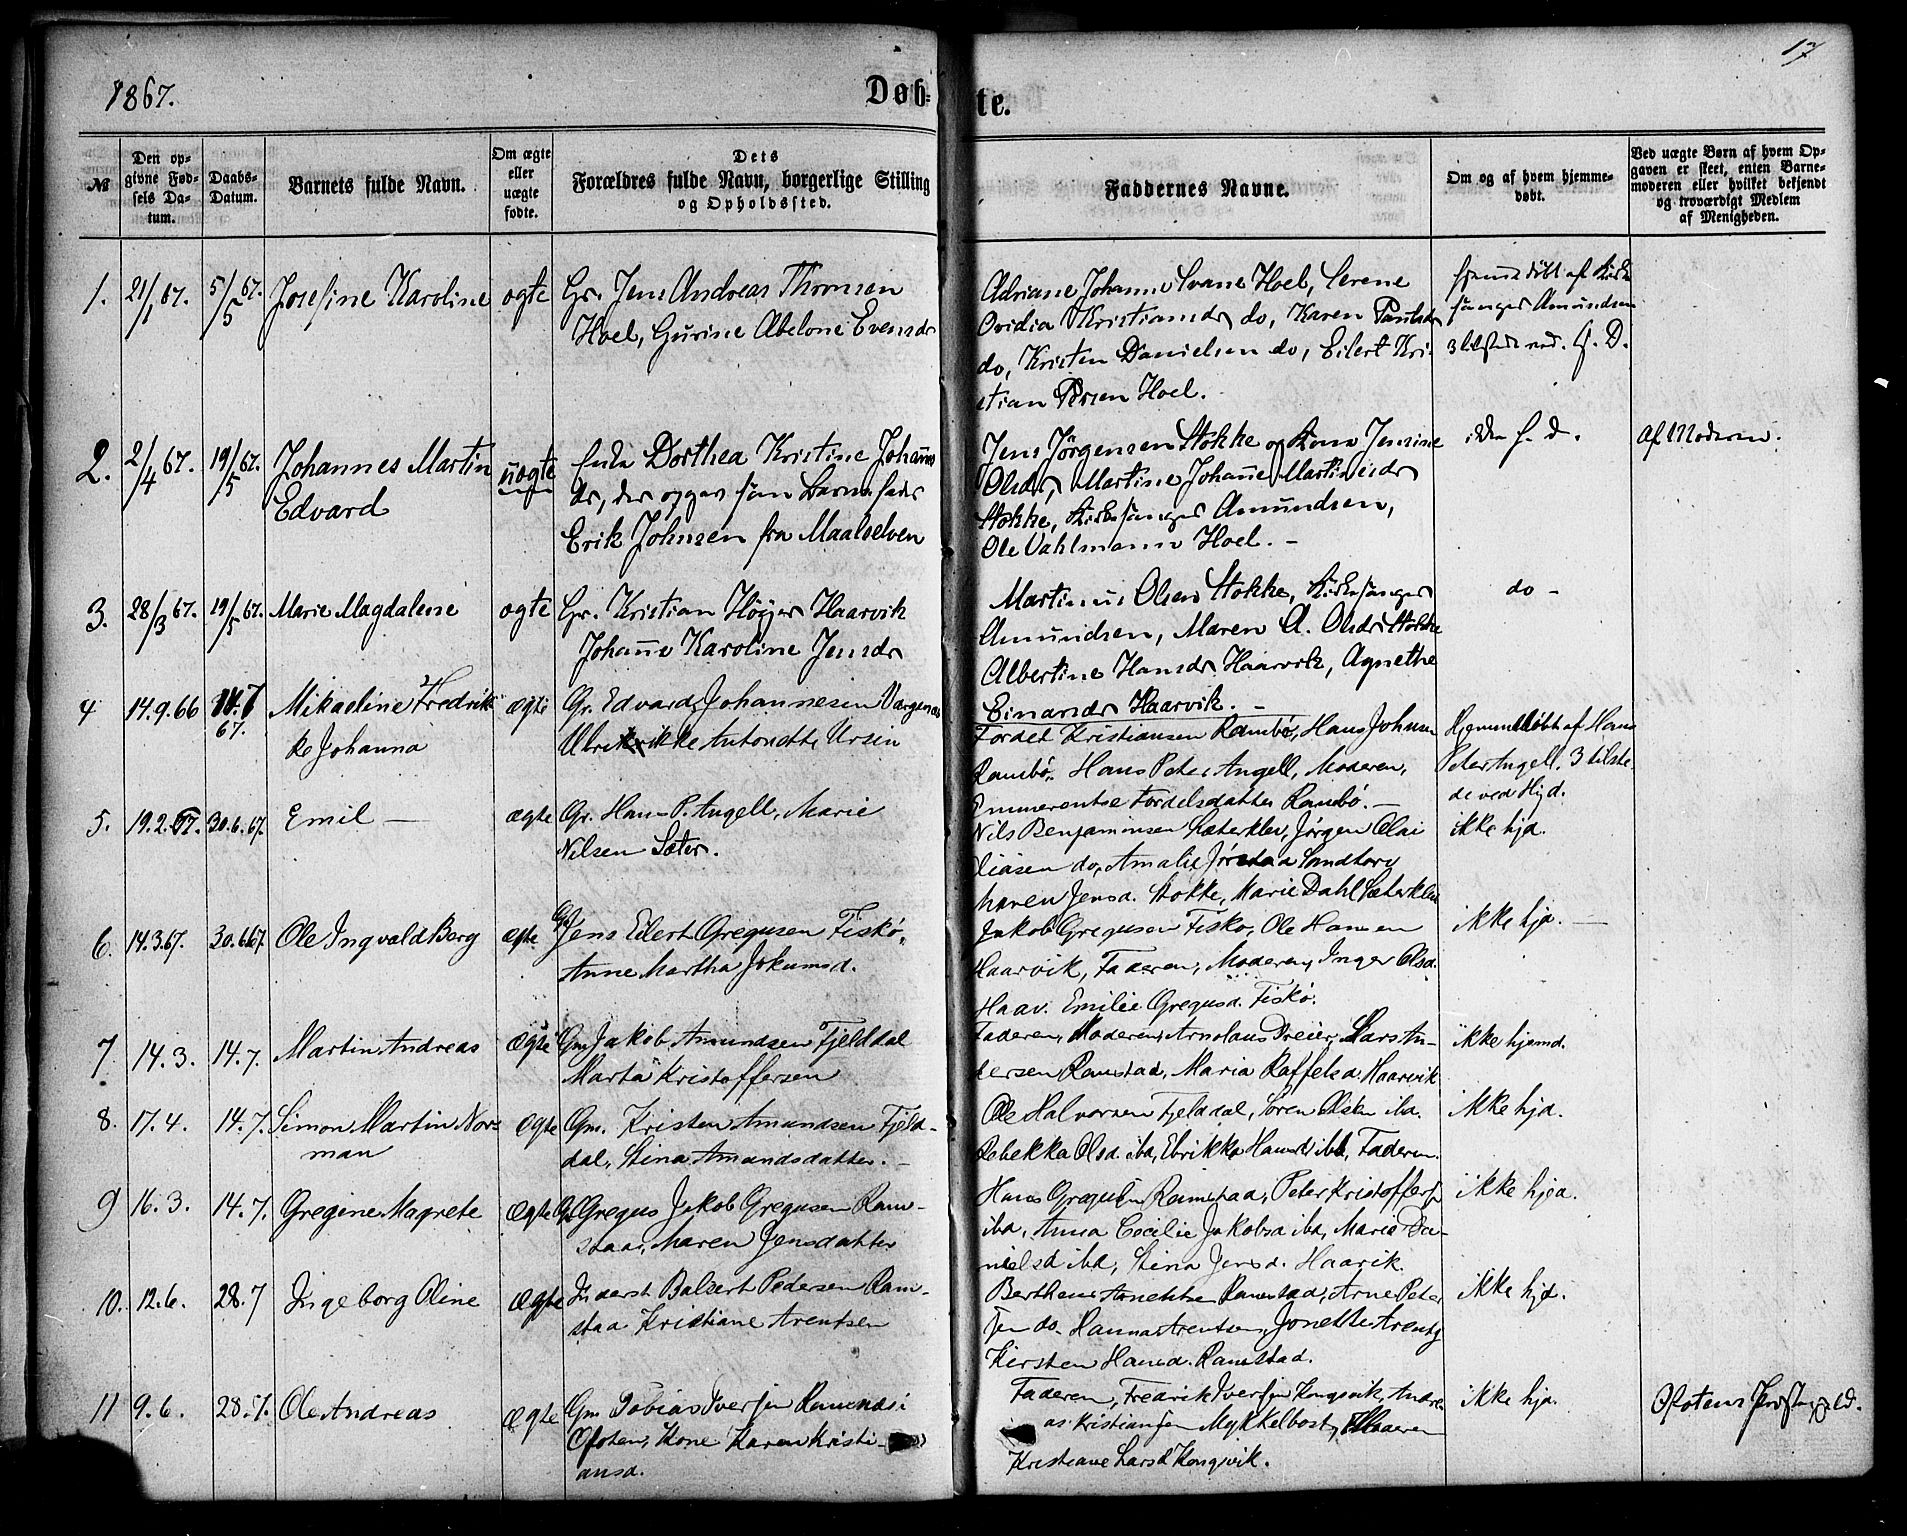 17
1867.
Døb-
te.
№
Den op-
givne Fød-
sels Da-
tum.
Daabs-
Datum.
Barnets fulde Navn.
Om ægte
eller
uægte
fødte.
Dets
Forældres fulde Navn, borgerlige Stilling
og Opholdssted.
Faddernes Navne.
Om og af hvem hjemme-
døbt.
Ved uægte Børn af hvem Op-
gaven er skeet, enten Barne-
moderen eller hvilket bekjendt
og troværdigt Medlem
af Menigheden.
1. 21/1 67. 5/5 67. Josefine Karoline ægte Gr. Jens Andreas Thomsen
Hoel, Gurine Abelone Evensdr
Adriane Johanne Svane Hoel, Serene
Ovidia Kristiansdr do, Karen Paulsdr
do, Kristen Danielsen do, Eilert Kri-
stian Persen Hoel.
hjemmedøbt af Kirke
sanger Amundsen
3 tilstede ved H. D.
2. 2/4 67. 19/5 67. Johannes Martin
Edvard
uægte
Enke Dorthea Kristine Johans
dr, der opgav som Barnefader
Erik Johnsen fra Maalselven
Jens Jørgensen Stokke og Kone Jensine
Olsdr, Martine Johanne Martinsdr
Stokke, Kirkesanger Amundsen,
Ole Vahlmann Hoel. -
ikke h. d.
Af Moderen.
3. 28/3 67. 19/5 67. Marie Magdalene ægte Gr. Kristian Höyer Haarvik
Johanne Karoline Jensdr
Martinus Olsen Stokke, Kirkesanger
Amundsen, Maren A. Olsdr Stokke
Albertine Hansdr Haarvik, Agnethe
Einarsdr Haarvik. -
do -
4 14.9.66 14.7
67. Mikaeline Fredrik-
ke Johanna
ægte Gr. Edvard Johannesen Vargenes
Ulrikke Antonette Ursin
Tordel Kristiansen Rambø, Hans Johnsen
Rambø, Hans Peter Angell, Moderen,
Emmerentse Tordelsdatter Rambø. -
Hjemmedøbt af Hans
Peter Angell. 3 tilste-
de ved Hjd.
5. 19.2.67. 30.6.67. Emil - ægte Gr. Hans P. Angell, Marie
Nilsen Sæter.
Nils Benjaminsen Sæterklev, Jørgen Olai
Eliasen do, Amalie Jørstad Sandtorg
Maren Jensd. Stokke, Marie Dahl Sæterklev
ikke hjd.
6. 14.3.67. 30.6.67. Ole Ingvald Berg ægte Gr. Jens Eilert Gregusen Fiskø,
Anne Martha Jokumsd.
Jakob Gregusen Fiskø, Ole Hansen
Haarvik, Faderen, Moderen, Inger Olsd.
Haav. Emilie Gregusd. Fiskø.
ikke hjd. -
7 14.3. 14.7. Martin Andreas ægte Gm Jakob Amundsen Fjelddal
Marta Kristoffersen
Faderen, Moderen, Arnolaus Dreier, Lars An-
dersen Ramstad, Maria Raffelsd. Haarvik
ikke hjemd.
8. 17.4. 14.7. Simon Martin Nor-
man
ægte Gm. Kristen Amundsen Fjeld-
dal, Stina Amundsdatter. -
Ole Halvorsen Fjelddal, Søren Olsen ibd.
Rebekka Olsd. ibd, Ulrikka Hansd ibd, Faderen.
ikke hjd.
9 16.3. 14.7. Gregine Magrete ægte Gr Gregus Jakob Gregusen Ram-
staa, Maren Jensdatter
Hans Gregusen Ramstad, Peter Kristoffers
ibd, Anna Cecilie Jakobsd ibd, Marie Da-
nielsd ibd, Stina Jensd. Haarvik.
ikke hjed.
10. 12.6. 28.7 Ingeborg Oline ægte Inderst Balsert Pedersen Ram-
staa Kristiane Arentsen
Ramstad, Arne Peter
sen do. Hanna Arentsen, Jonette Arents
Kirsten Hansd. Ramstad.
ikke hjd.
11 9.6. 28.7. Ole Andreas ægte Gm Tobias Iversen Ramnæs i
Ofoten, Kone Karen Kristi-
ansd.
Faderen, Fredrik Iversen Kongsvik, Andre-
as Kristiansen Mykkelbost, Moderen
Kristiane Larsd Kongsvik.
ikke hjd.
Ofotens Præstegjeld.